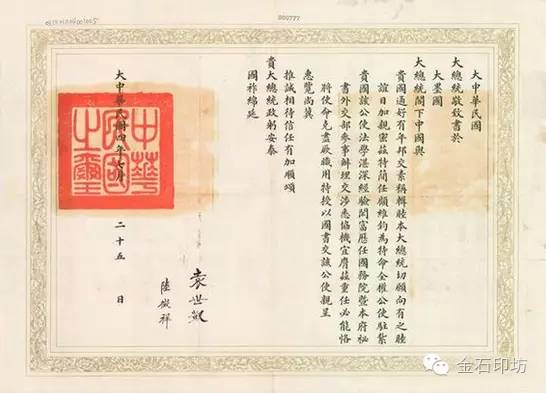 009777
大中華民國
大總統敬致書於
大墨國
大總統閣下中國與
貴國通好有年邦交素稱輯睦本大總統切願向有之睦
誼日加親密茲特簡任顧維鈞為特命全權公使駐紮
貴國該公使法學湛深經驗閎富歷任國務院暨本府祕
書外交部參事辦理交涉悉協機宜膺茲重任必能恪
將使命克盡厥職用特授以國書交該公使親呈
惠覽尚冀
推誠相待信任有加願頌
貴大總統政躬安泰
國祚綿延
袁世凱
陸徵祥
大中華民國四年七月二十五日
中華民國之璽
金石印坊